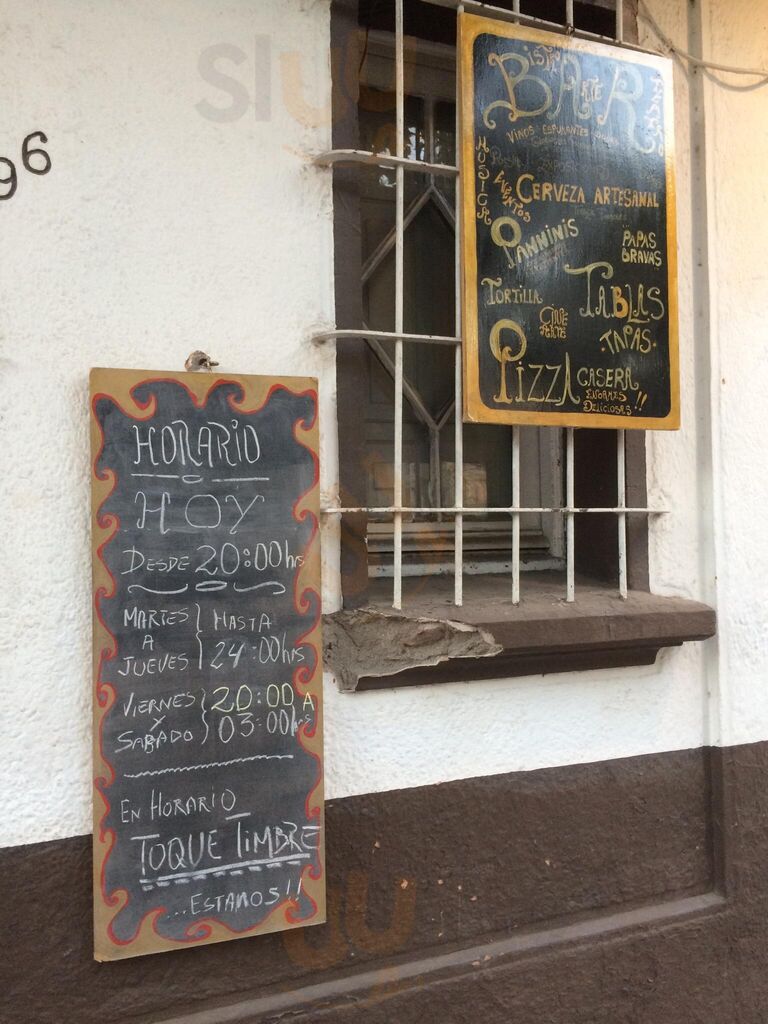 96
BAR
Bistró
Arte
VINOS ESPUMANTES
MUSICA
EVENTOS
CERVEZA ARTESANAL
PANNINIS
PAPAS
BRAVAS
TORTILLA
TABLAS
CINE
ARTE
TAPAS
PIZZA CASERA
ENORMES
DELICIOSAS!!
HORARIO
HOY
DESDE 20:00hrs
MARTES
A
JUEVES
HASTA
24:00hrs
VIERNES
Y
SABADO
20:00 A
03:00hrs
EN HORARIO
TOQUE TIMBRE
...ESTAMOS!!